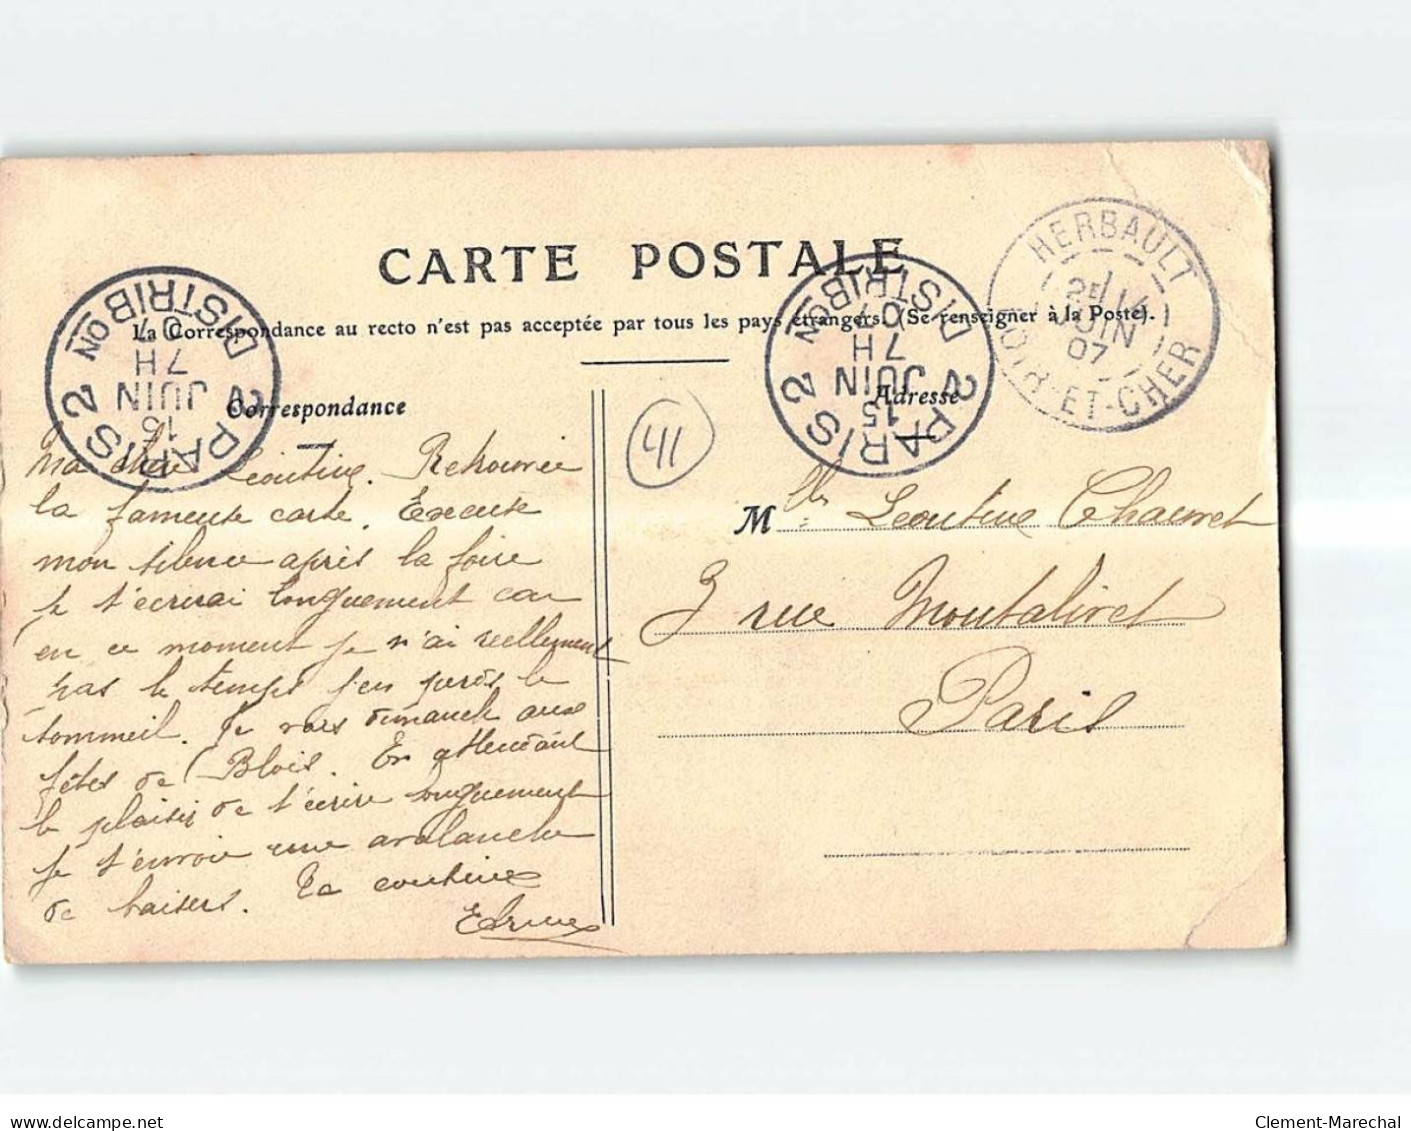 CARTE POSTALE
La Correspondance au recto n'est pas acceptée par tous les pays étrangers. (Se renseigner à la Poste).
Correspondance
Adresse
HERBAULT
2E 14
JUIN
07
LOIR-ET-CHER
PARIS 2
DISTRIBON
15
JUIN
7H
07
PARIS 2
DISTRIBON
15
JUIN
7H
07
41
Ma chère Léontine. Retrouvée
la fameuse carte. Excuse
mon silence après la foire
je t'écrirai longuement car
en ce moment je n'ai réellement
pas le temps j'en perds le
sommeil. Je vais dimanche aux
fêtes de Blois. En attendant
le plaisir de t'écrire longuement
je t'envoie une avalanche
de baisers. Ta cousine
Mlle Léontine Chauvet
3 rue Montalivet
Paris
Clement-Marechal